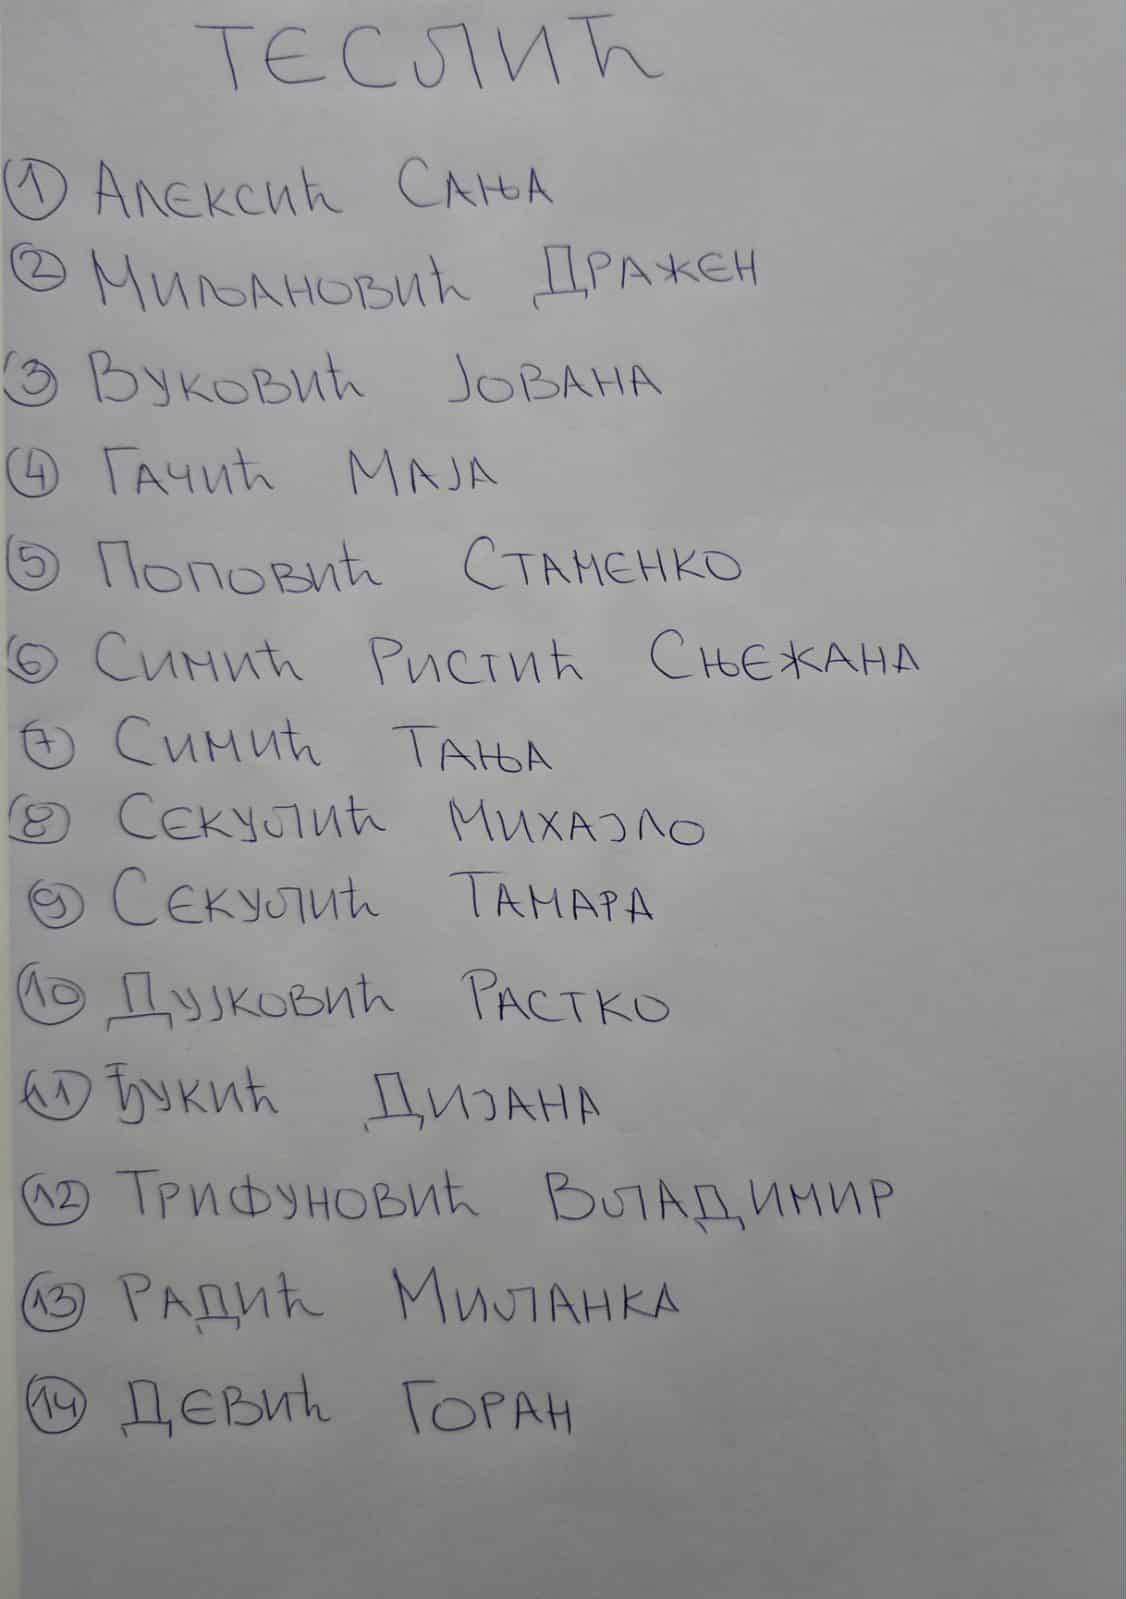 ТЕСЛИЋ
1 АЛЕКСИЋ САЊА
2 МИЉАНОВИЋ ДРАЖЕН
3 ВУКОВИЋ ЈОВАНА
4 ГАЧИЋ МАЈА
5 ПОПОВИЋ СТАМЕНКО
6 СИМИЋ РИСТИЋ СЊЕЖАНА
7 СИМИЋ ТАЊА
8 СЕКУЛИЋ МИХАЈЛО
9 СЕКУЛИЋ ТАМАРА
10 ДУЈКОВИЋ РАСТКО
11 ЂУКИЋ ДИЈАНА
12 ТРИФУНОВИЋ ВЛАДИМИР
13 РАДИЋ МИЛАНКА
14 ДЕВИЋ ГОРАН